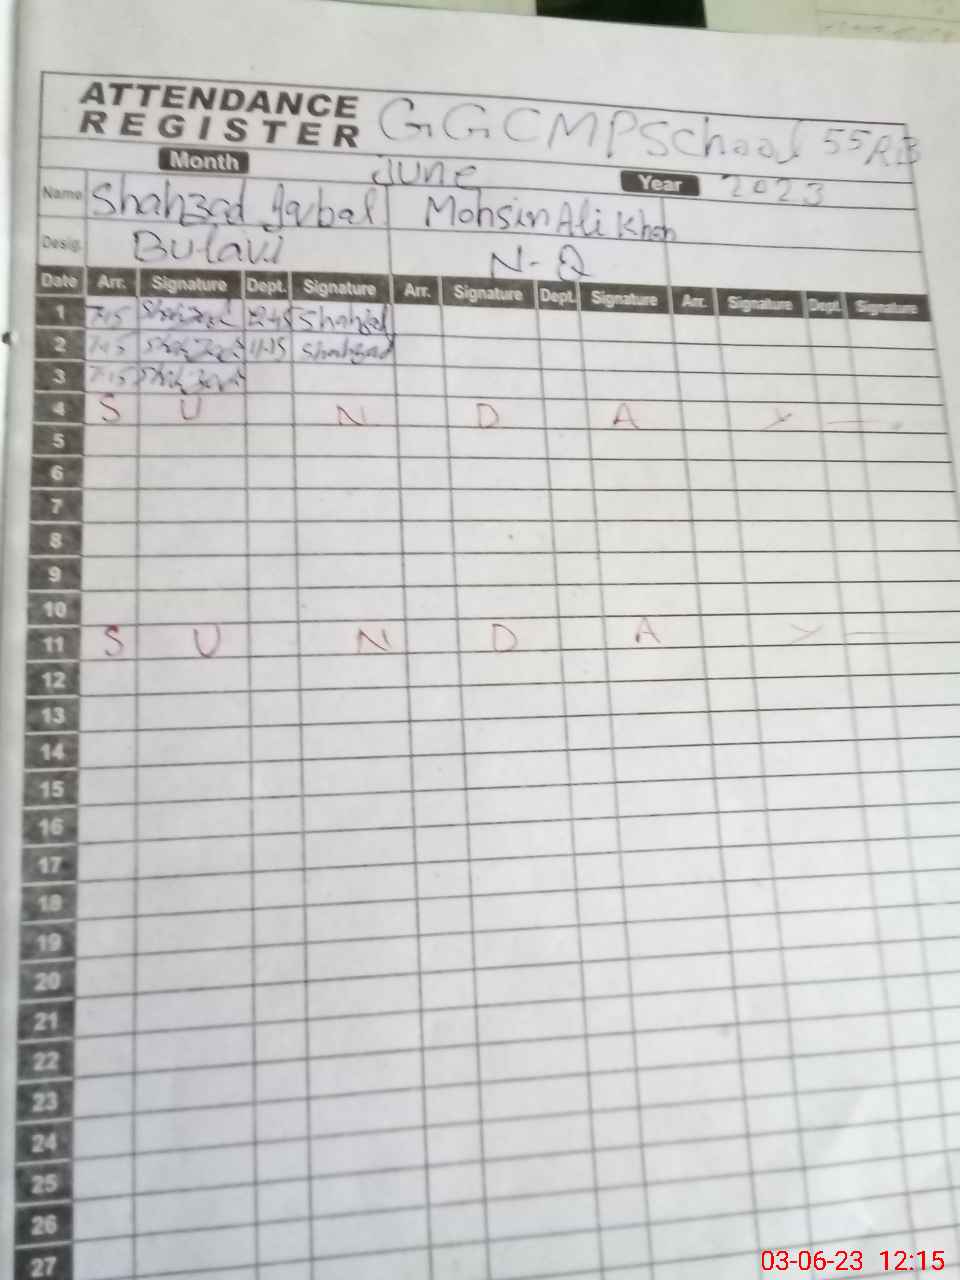 ATTENDANCE
REGISTER
GGCMPSchool 55RB
Month June Year 2023
Name Shahzad Iqbal Mohsin Ali Khan
Desig. N-Q
Date Arr. Signature Dept. Signature Arr. Signature Dept. Signature Arr. Signature Dept. Signature
1 7-15 Shahzad 12-45 Shahzad
2 7-15 Shahzad 11-15 Shahzad
3 7-15 Shahzad
4 S U N D A Y
5
6
7
8
9
10
11 S U N D A Y
12
13
14
15
16
17
18
19
20
21
22
23
24
25
26
27
03-06-23 12:15